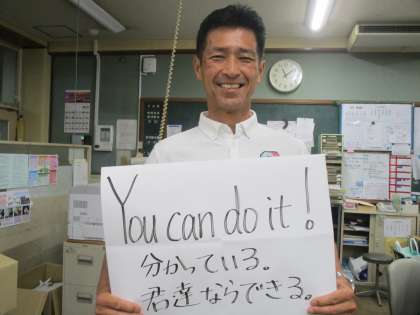 You can do it!
分かっている。
君達ならできる。